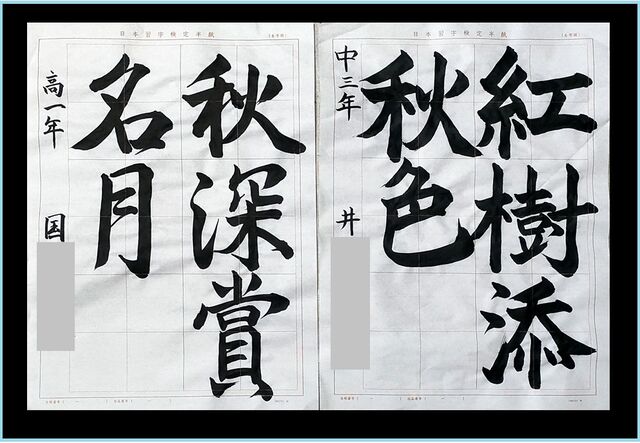 日本習字検定半紙
紅樹添
秋色
中三年
井
日本習字検定半紙
秋深賞
名月
高一年
国